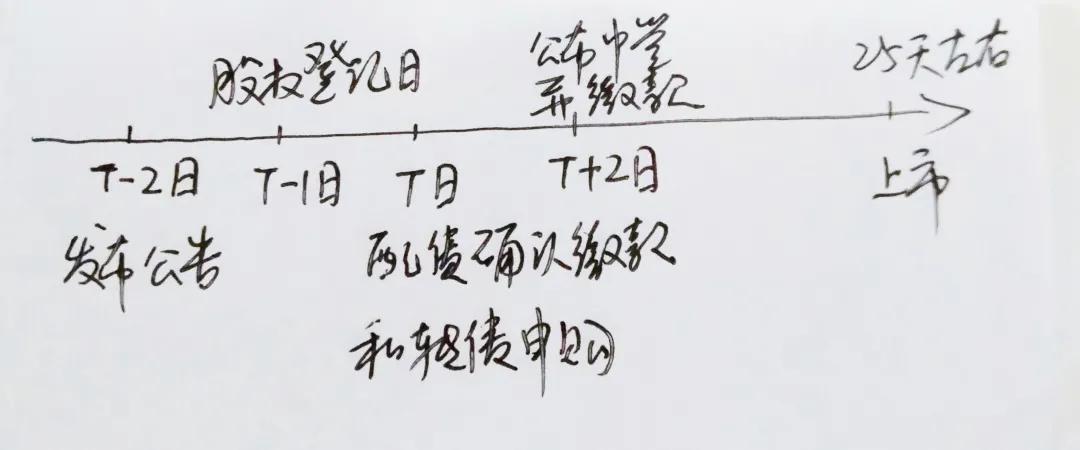 股权登记日
公布中签
并缴款
25天左右
T-2日
T-1日
T日
T+2日
上市
发布公告
配债确认缴款
和转债申购